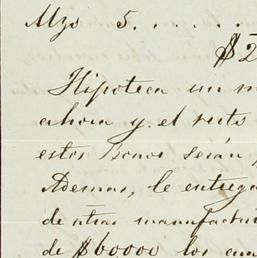 Mzo 5. . . . . .
$2
Hipoteca un m
ahora y el resto
estos Bonos serán
Ademas, le entrega
de ntras manufactu
de $60000 los cua